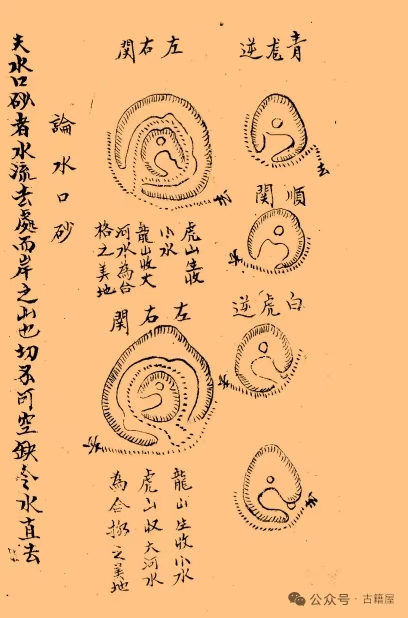 青龍逆
去
順関
去
白虎逆
去
去
左右関
去
虎山生收
小水
龍山收大
河水為合
格之美地
左右関
去
龍山生收小水
虎山收大河水
為合格之美地
論水口砂
夫水口砂者水流去處而岸之山也切不可空缺令水直去
公众号·古籍屋